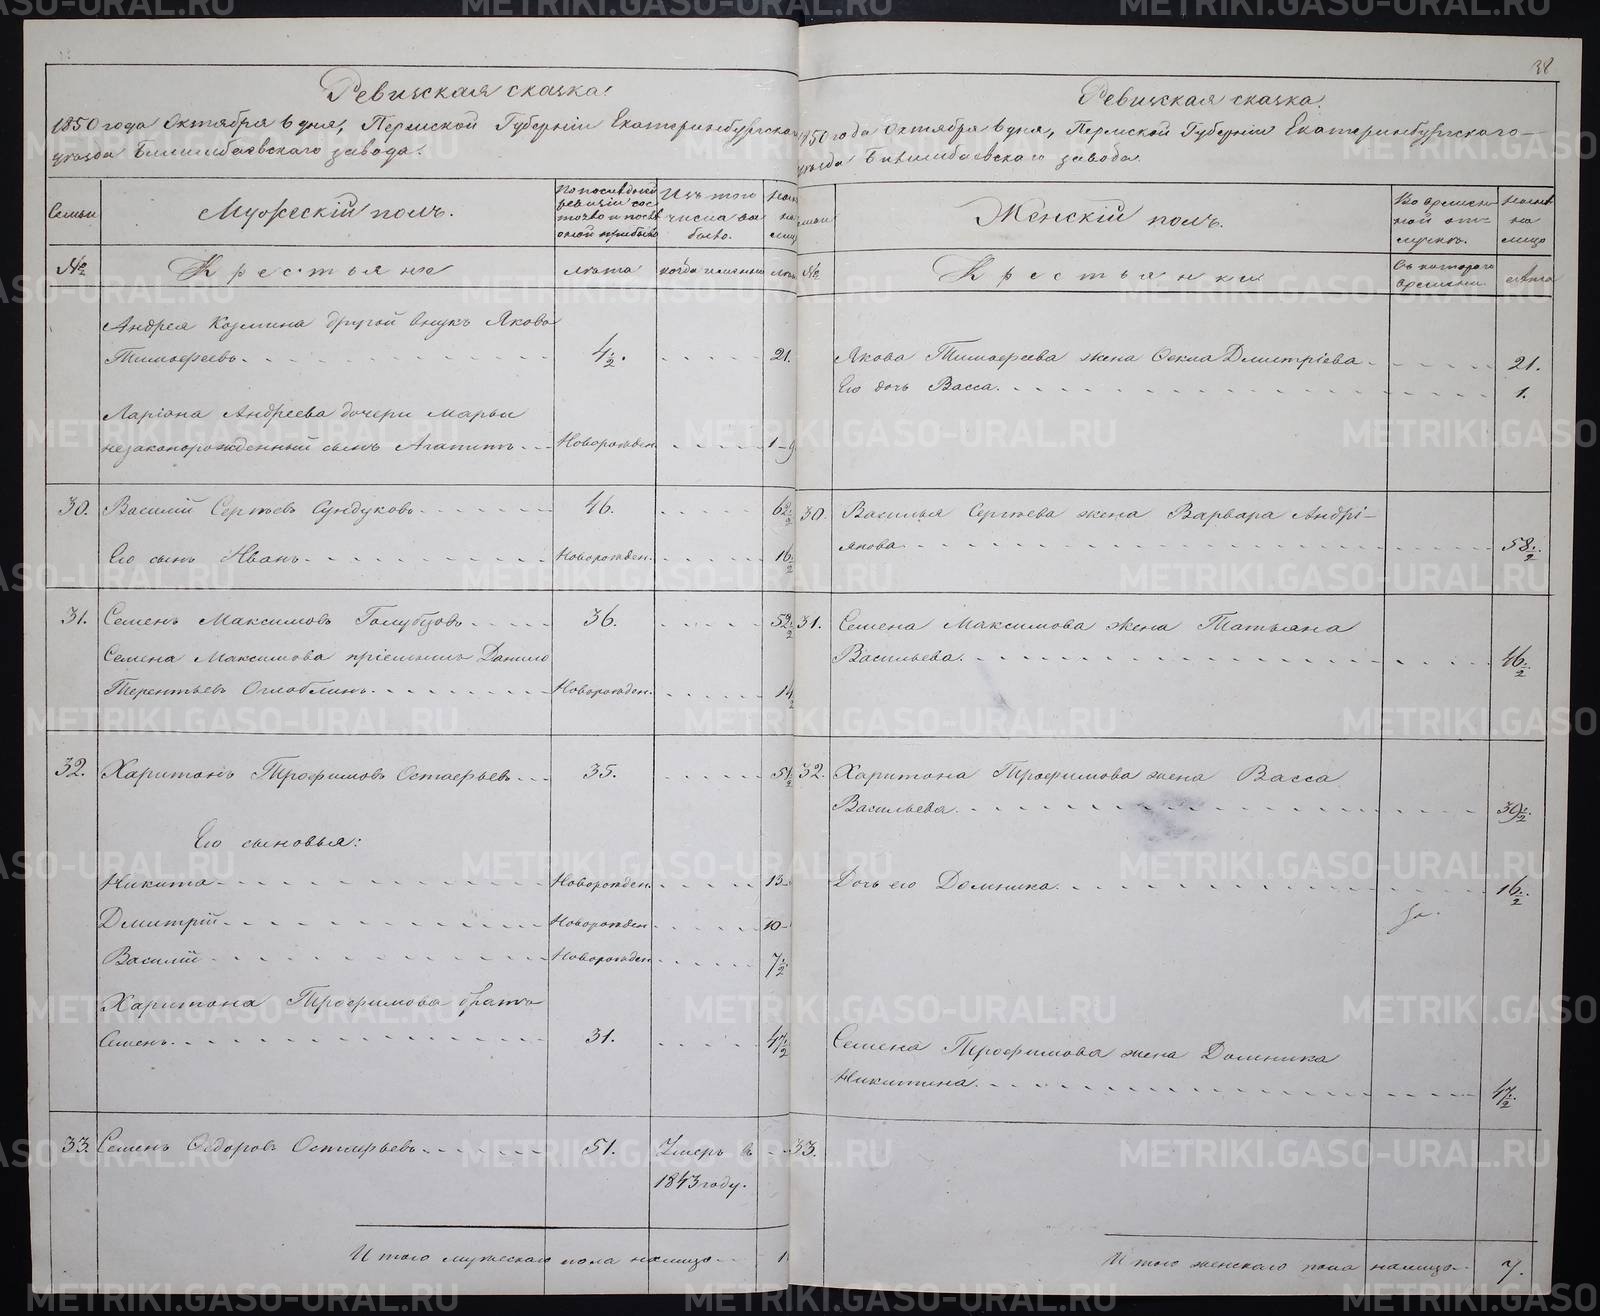 Ревизская сказка.
1850 года Октября 6 дня, Пермской Губерніи Екатеринбургска
уезда Билимбаевского завода.
Семьи
Мужескій полъ.
По последней ревизіи состояло и после оной прибыло
Изъ того числа выбыло.
Ныне на лицо
№
Крестьяне
лета
когда именно
лета
Андрея Козмина другой внукъ Яковъ
Тимофеевъ. 4 1/2. 21.
Ларіона Андреева дочери Марьи
незаконорожденный сынъ Агапитъ Новорожден. 1
30. Василій Сергеевъ Сундуковъ 46. 62 1/2
Его сынъ Иванъ. Новорожден. 16 1/2
31. Семенъ Максимовъ Голубцовъ 36. 52 1/2
Семена Максимова пріемышъ Данило
Терентьевъ Оглоблинъ. Новорожден. 14 1/2
32. Харитонъ Трофимовъ Остафьевъ 35. 51 1/2
Его сыновья:
Никита Новорожден. 13
Дмитрій Новорожден 10
Василій Новорожден 7 1/2
Харитона Трофимова братъ
Семенъ. 31. 47 1/2
33. Семенъ Федоровъ Остафьевъ 51. Умеръ въ
1843 году.
Итого мужескаго пола налицо 1
38
Ревизская сказка.
1850 года Октября 6 дня, Пермской Губерніи Екатеринбургскаго
уезда Билимбаевскаго завода.
семьи
Женскій полъ.
Во временной отлучке.
Ныне на лицо
№
Крестьянки
Съ котораго времени
лета
Якова Тимофеева жена Фекла Дмитріева 21.
Его дочь Васса. 1.
30. Василья Сергеева жена Варвара Андрі-
янова 58 1/2.
31. Семена Максимова жена Татьяна
Васильева. 46 1/2
32. Харитона Трофимова жена Васса
Васильева. 39 1/2.
Дочь его Домника. 16 1/2
Семена Трофимова жена Домника
Никитина. 47 1/2.
33.
Итого женскаго пола налицо 7.
METRIKI.GASO-URAL.RU